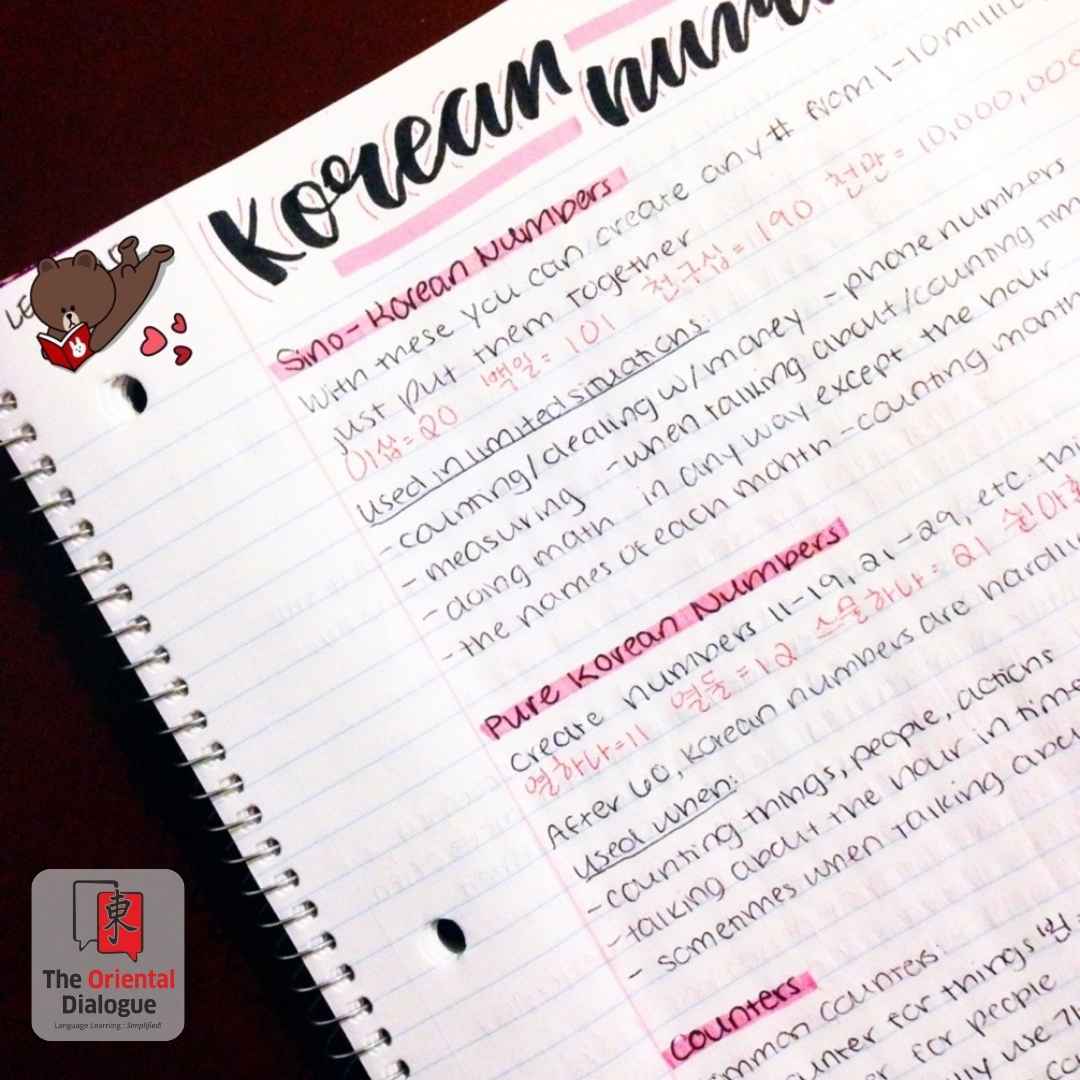 Korean
Sino-Korean Numbers
With these you can create any # from 1-10
just put them together
이십=20 백일=101 천구십=190 천만=10,000,000
used in limited situations:
-counting/dealling w/money -phone numbers
-measuring -when talking about/counting
-doing math in any way except the hour
-the names of each month -counting
Pure Korean Numbers
Create numbers 11-19, 21-29, etc.
열하나=11 열둘=12 스물하나=21
After 60, Korean numbers are hardly
used when:
-counting things, people, actions
-talking about the hour in time
-sometimes when talking
Counters
counters:
for things
for people
use
The Oriental
Dialogue
Language Learning : Simplified!
東